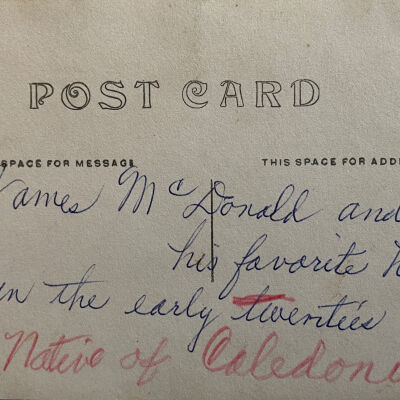 POST CARD
SPACE FOR MESSAGE THIS SPACE FOR ADD
James McDonald and
his favorite
in the early twenties
Native of Caledoni